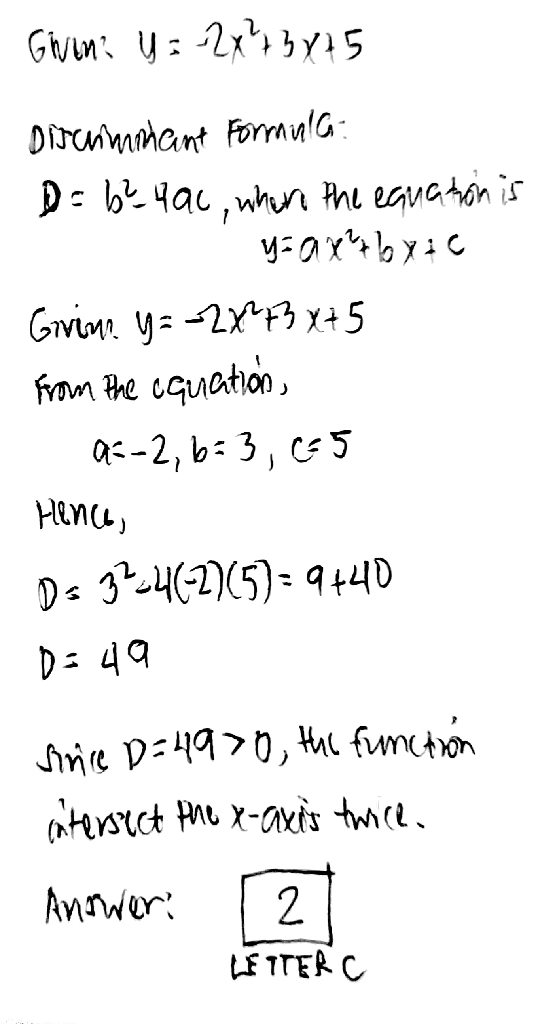 Given: y = -2x²+3x+5
Discriminant Formula:
D = b²-4ac, where the equation is
y=ax²+bx+c
Given: y = -2x²+3x+5
From the equation,
a=-2, b=3, c=5
Hence,
D = 3²-4(-2)(5) = 9+40
D = 49
Since D=49>0, the function
intersect the x-axis twice.
Answer: 2
LETTER C